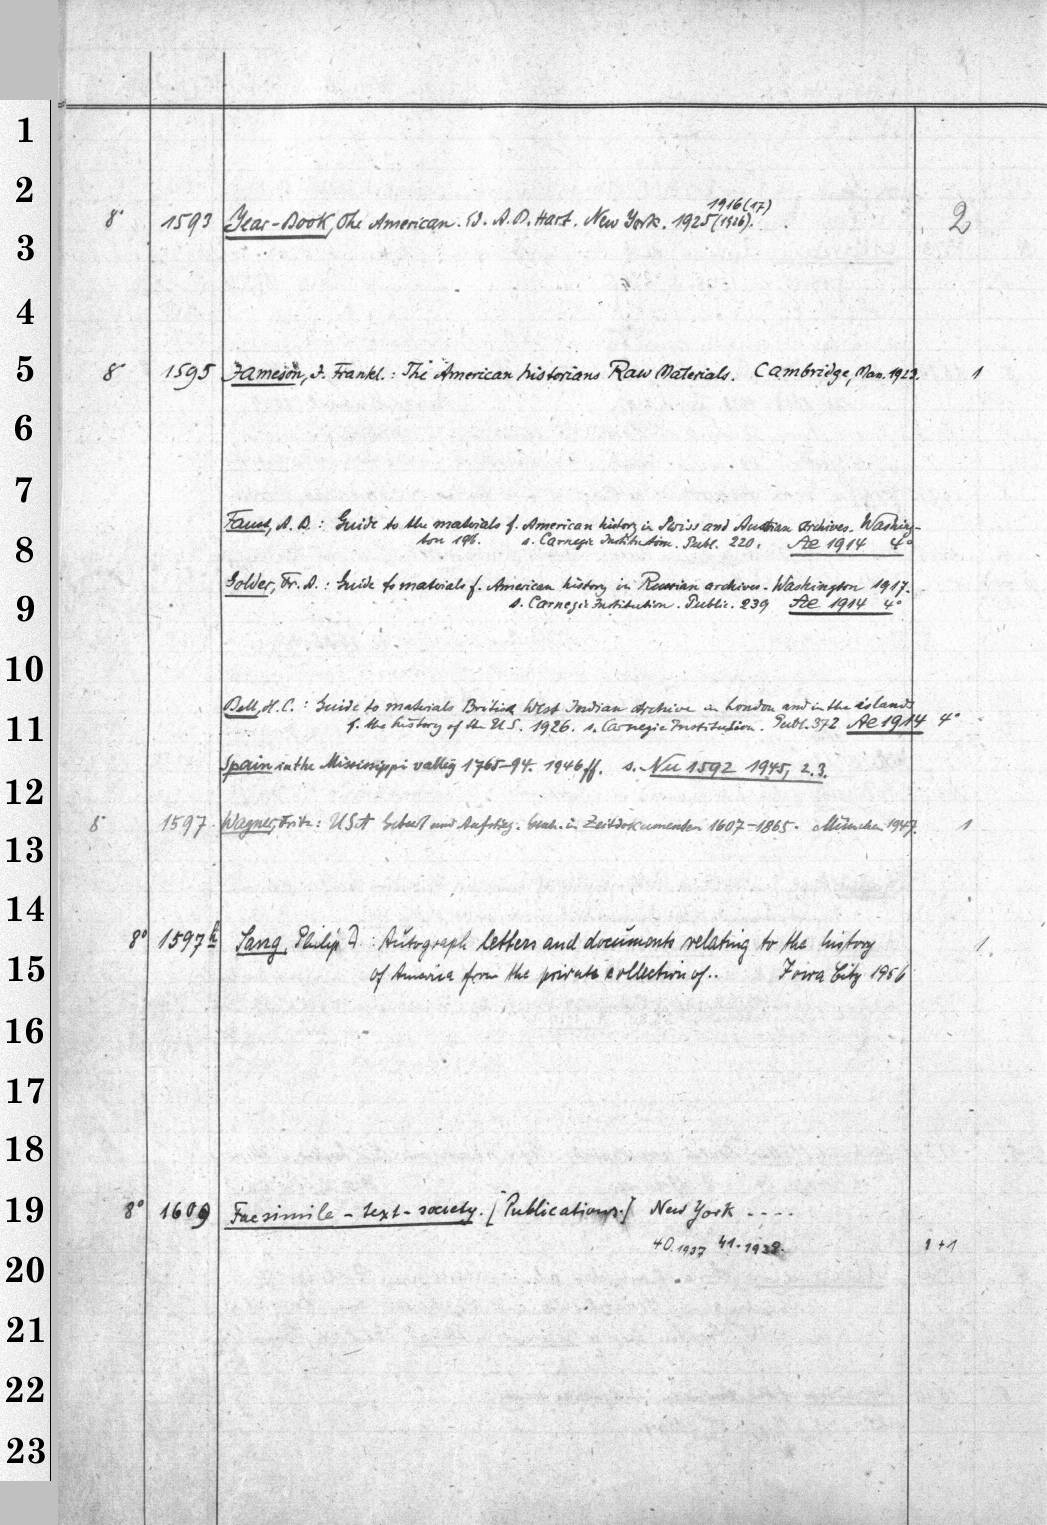 1
2
1916(17)
8° 1593 Year-Book, The American. Ed. A. B. Hart. New York. 1925(1926). 2
3
4
5 8° 1595 Jameson, J. Frankl.: The American historians Raw Materials. Cambridge, Mass. 1923. 1
6
7
Faust, A. B.: Guide to the materials f. American history in Swiss and Austrian archives. Washing-
8 ton 1916. s. Carnegie Institution. Publ. 220. Ae 1914 4°
Golder, Fr. A.: Guide to materials f. American history in Russian archives. Washington 1917.
9 s. Carnegie Institution. Public. 239 Ae 1914 4°
10
Bell, H. C.: Guide to materials British West Indian archive in London and in the islands
11 f. the history of the U.S. 1926. s. Carnegie Institution. Publ. 372 Ae 1914 4°
Spain in the Mississippi valley 1765-94. 1946 ff. s. Nu 1592 1945, 2.3.
12
8° 1597 Wagner, Fritz: USA Geburt und Aufstieg. in Zeitdokumenten 1607-1865. München 1947. 1
13
14
8° 1597h Sang, Philip D.: Autograph letters and documents relating to the history 1
15 of America from the private collection of.. Iowa City 1956
16
17
18
19 8° 1609 Facsimile-text-society. [Publications.] New York ----
40.1937 41.1938. 1+1
20
21
22
23